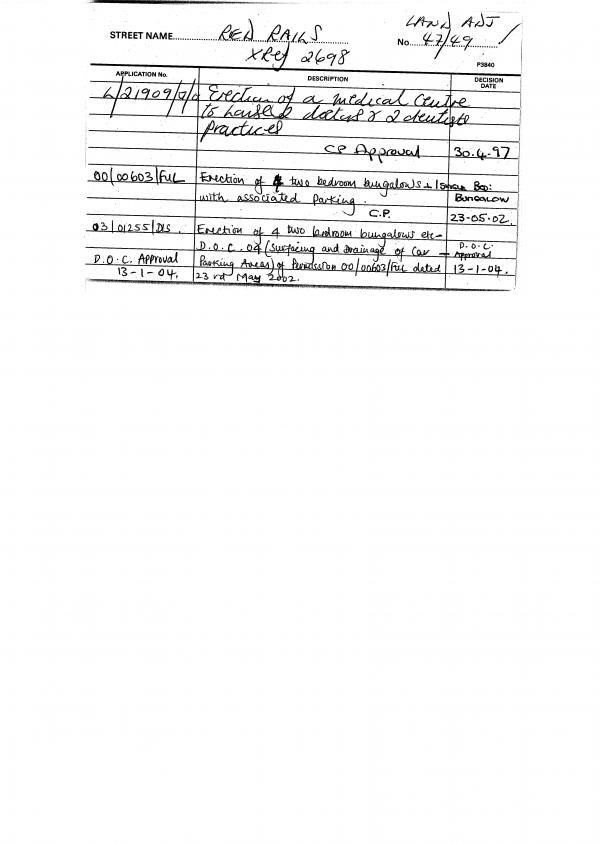 LAND ADJ
STREET NAME RED RAILS No. 47/49
XRef 2698
P3840
APPLICATION No. DESCRIPTION DECISION DATE
L/21909/ Erection of a medical Centre
to house 2 doctors & 2 dentists
practices
CP Approval 30.4.97
00/00603/FUL Erection of 4 two bedroom bungalows + 1 Bed:
with associated Parking. Bungalow
C.P. 23-05-02.
03/01255/DLS. Erection of 4 two bedroom bungalows etc-
D.O.C. 04 (Surfacing and Drainage of Car — D.O.C. Approval
D.O.C. Approval Parking Areas) of Permission 00/00603/FUL dated 13-1-04.
13-1-04. 23rd May 2002.